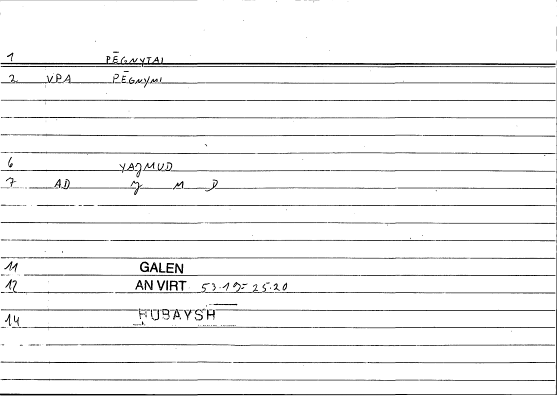 1 PĒGNYTAI
2 VPA PĒGNYMI
6 YAJMUD
7 AD J M D
11 GALEN
12 AN VIRT 53-19= 25.20
14 RUBAYSH